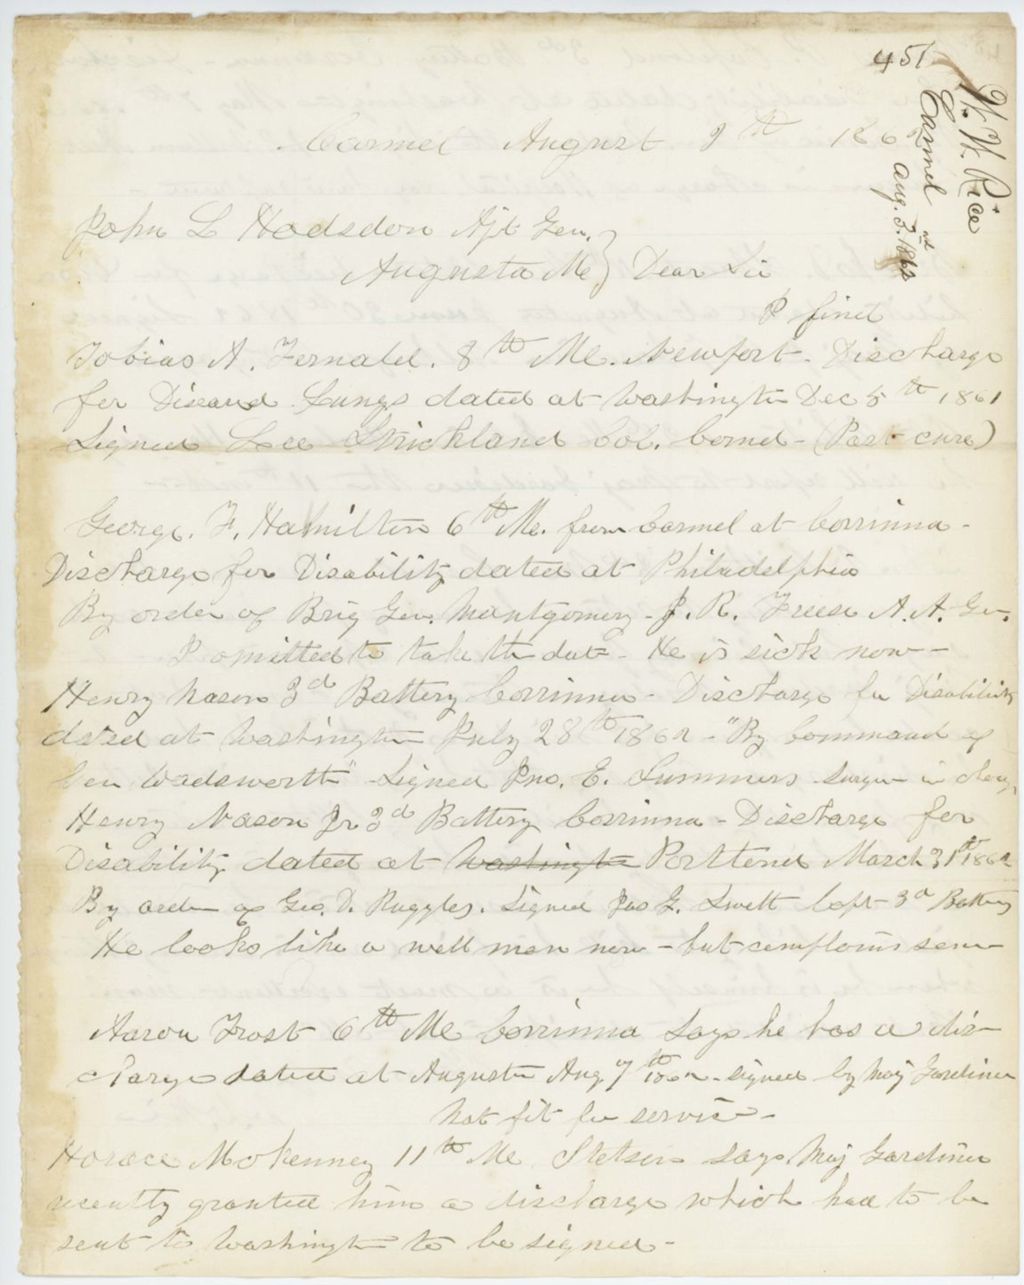 451
W. W. Rice
Carmel
Aug. 3rd 1862
Carmel August 9th 186
John L Hodsdon Ajt Gen.
Augusta Me } Dear Sir
I find
Tobias A. Fernald. 8th Me. Newport - Discharge
for Diseased Lungs dated at Washington Dec 5th 1861
Signed Lee Strickland Col. Comd - (Past cure)
George. F. Hamilton 6th Me. from Carmel at Corrinna -
Discharge for Disability dated at Philadelphia
By order of Brig Gen. Montgomery - J. R. Freese A. A. Gen.
I omitted to take the date - He is sick now -
Henry Nason 3d Battery Corrinna - Discharge for Disability
dated at Washington July 28th 1862 - "By Command of
Gen Wadsworth" - Signed Jno. E. Summers - Surgeon in charge
Henry Nason Jr 3d Battery Corrinna - Discharge for
Disability dated at Washington Portland March 31st 1862
By order of Geo. D. Ruggles. Signed Jas G. Swett Capt 3d Battery
He looks like a well man now - but complains some
Aaron Frost 6th Me Corrinna Says he has a dis-
charge dated at Augusta Aug 7th 1862 - signed by Maj Gardiner
Not fit for service -
Horace McKenney 11th Me Stetson says Maj Gardiner
recently granted him a discharge which had to be
sent to Washington to be signed -